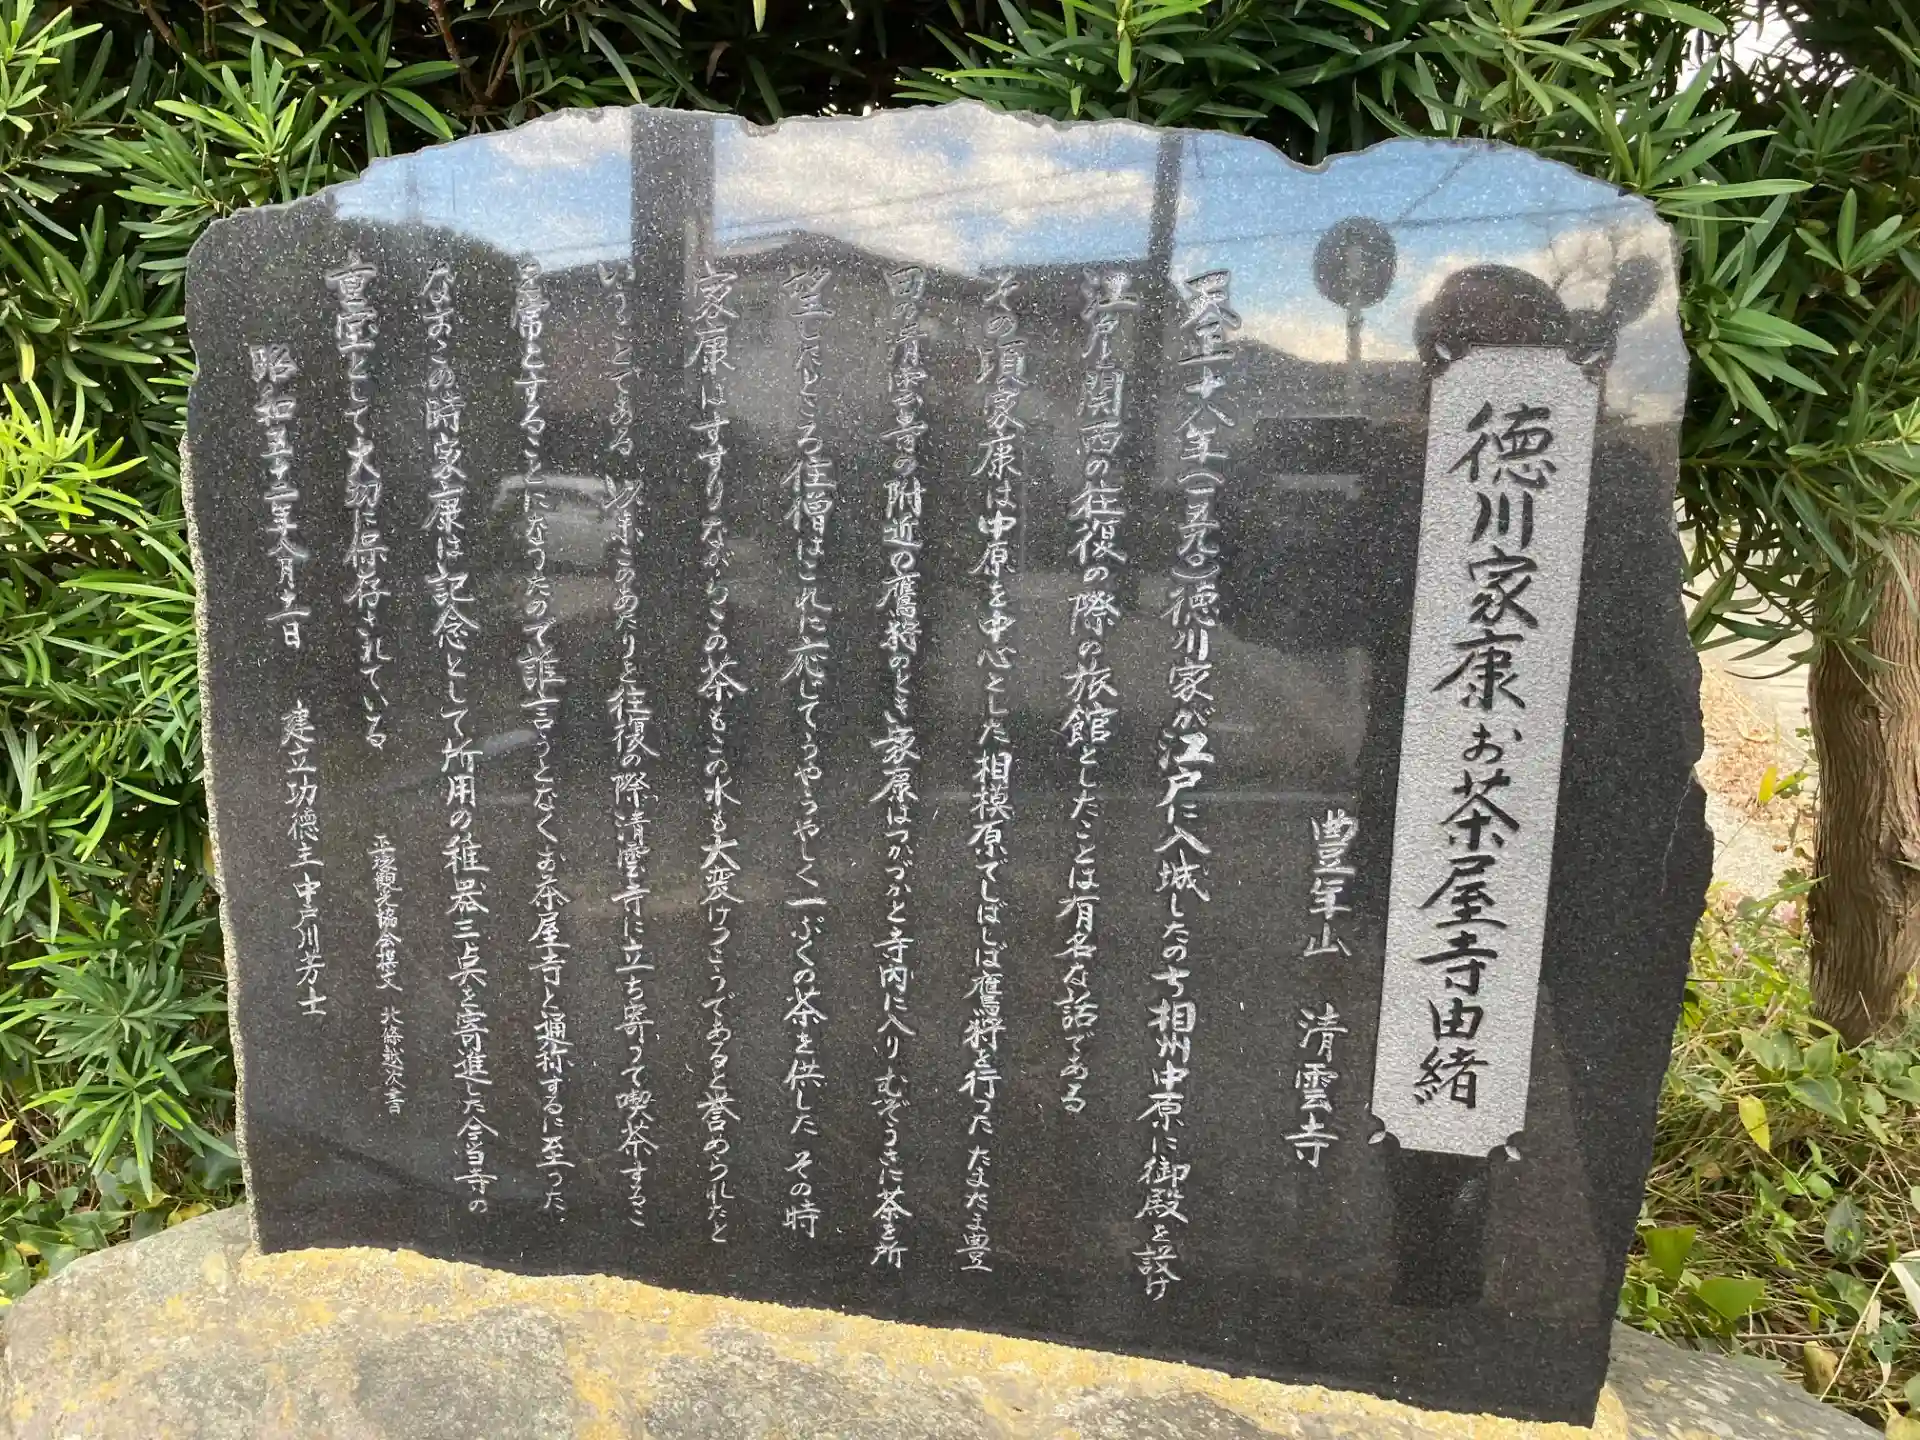 徳川家康お茶屋寺由緒
豊年山 清雲寺
天正十八年(一五九〇)徳川家が江戸に入城したのち相州中原に御殿を設け
江戸と関西の往復の際の旅館としたことは有名な話である
その頃家康は中原を中心とした相模原でしばしば鷹狩を行った たまたま豊
田の清雲寺の附近の鷹狩のとき家康はつかつかと寺内に入りむぞうさに茶を所
望したところ住僧はこれに応じてうやうやしく一ぷくの茶を供した その時
家康はすすりながらこの茶もこの水も大変けっこうであると誉められたと
いうことである 以来このあたりと往復の際清雲寺に立ち寄って喫茶するこ
を常とすることになったので誰言うとなくお茶屋寺と通称するに至った
なおこの時家康は記念として所用の稚器三点を寄進した 今当寺の
重宝として大切に保存されている
平塚観光協会撰文 北條越次書
昭和五十二年八月十一日 建立功徳主 中戸川芳士